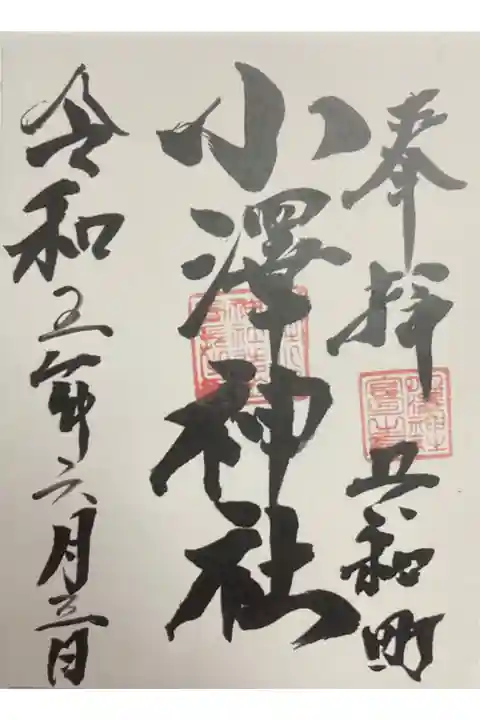 奉拝 共和町
小澤神社
令和五年六月三日